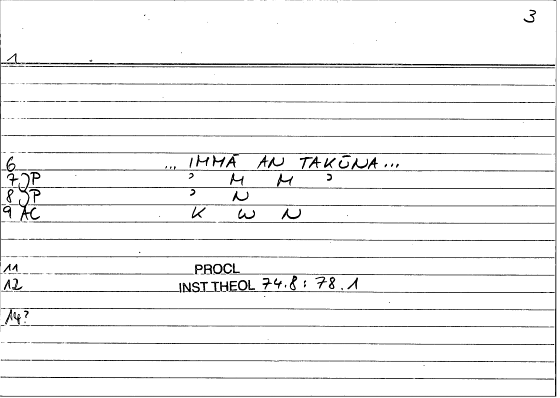 3
1
6 ... IMMĀ AN TAKŪNA ...
7 JP ʾ M M ʾ
8 JP ʾ N
9 AC K W N
11 PROCL
12 INST THEOL 74.8 : 78.1
14?